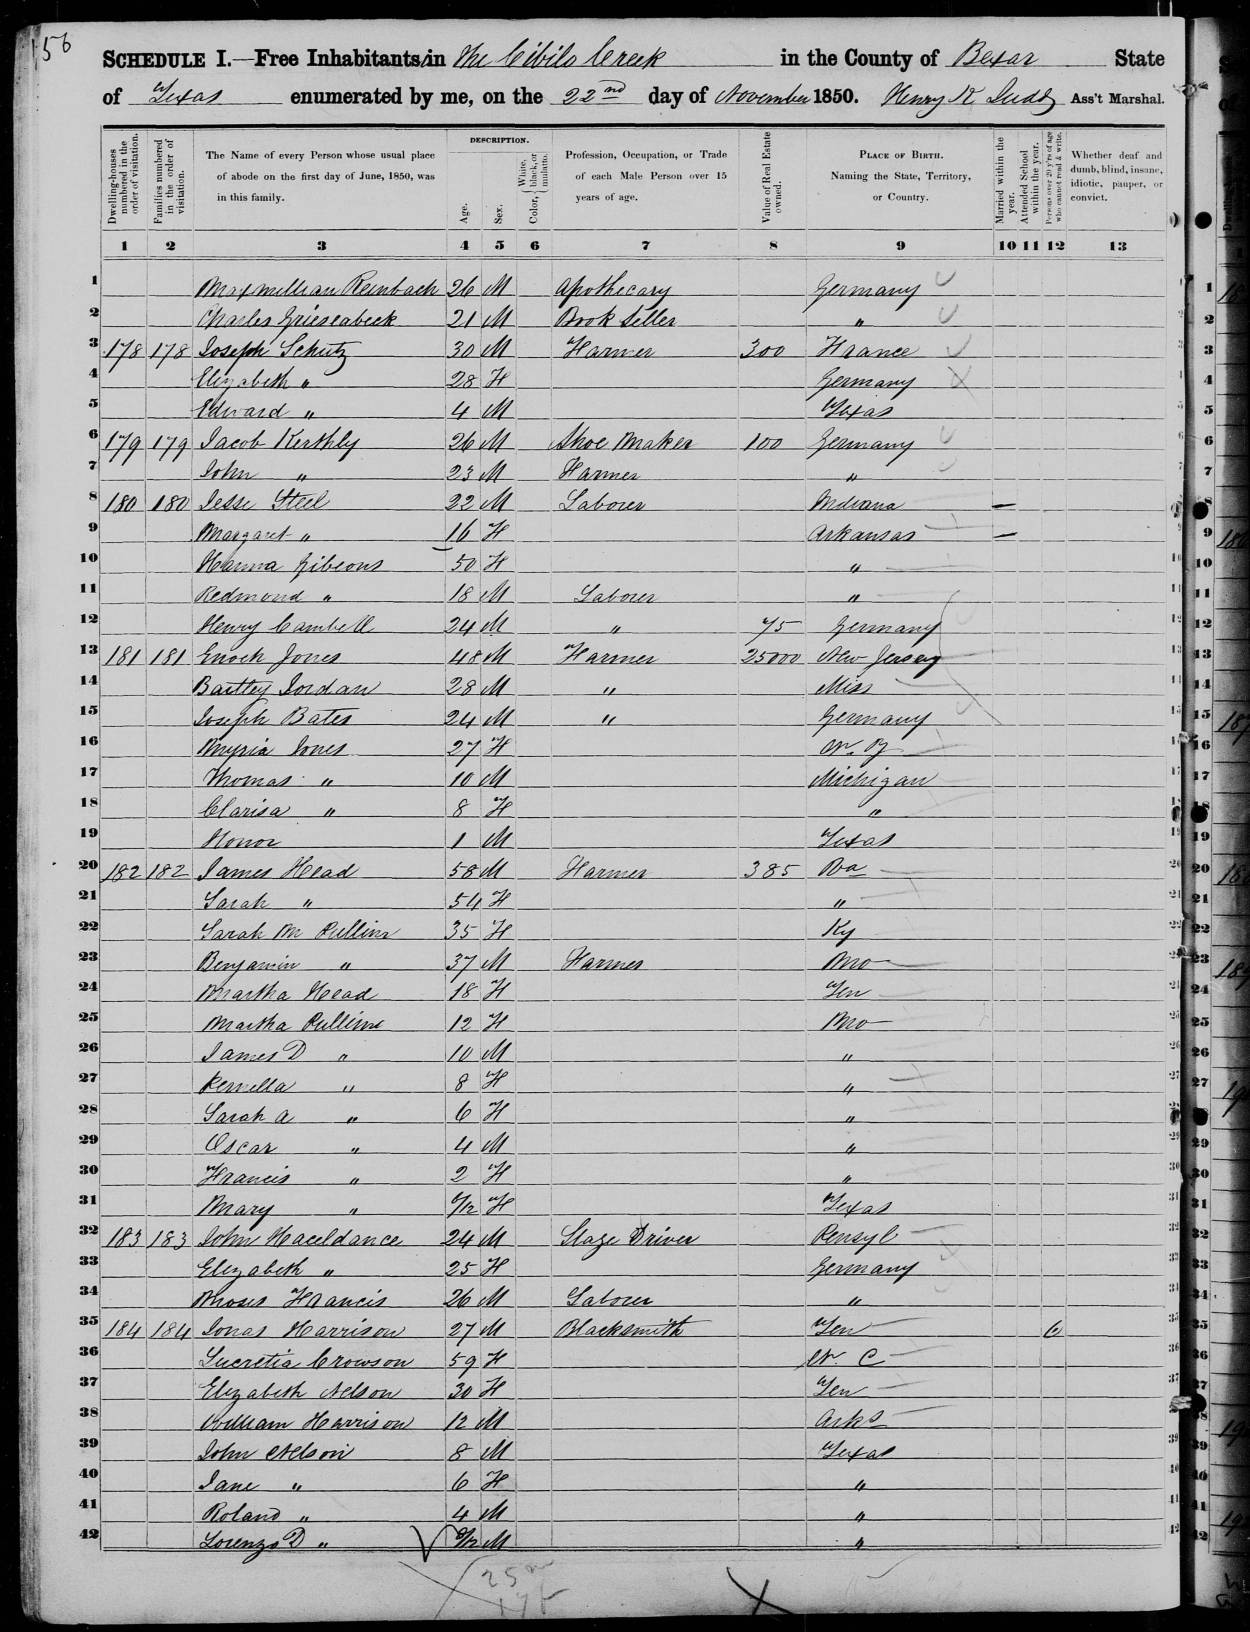 156
SCHEDULE I.—Free Inhabitants in the Cibilo Creek in the County of Bexar State
of Texas enumerated by me, on the 22nd day of November 1850. Henry K Judd Ass't Marshal.
Dwelling-houses numbered in the order of visitation.
Families numbered in the order of visitation.
The Name of every Person whose usual place of abode on the first day of June, 1850, was in this family.
DESCRIPTION.
Age.
Sex.
Color, { White, black, or mulatto.
Profession, Occupation, or Trade of each Male Person over 15 years of age.
Value of Real Estate owned.
PLACE OF BIRTH. Naming the State, Territory, or Country.
Married within the year.
Attended School within the year.
Persons over 20 y'rs of age who cannot read & write.
Whether deaf and dumb, blind, insane, idiotic, pauper, or convict.
1 2 3 4 5 6 7 8 9 10 11 12 13
1 Maxmillian Reinbach 26 M Apothecary Germany 1
2 Charles Grieseabeck 21 M Book Seller " 2
3 178 178 Joseph Schutz 30 M Farmer 300 France 3
4 Elizabeth " 28 F Germany 4
5 Edward " 4 M Texas 5
6 179 179 Jacob Kerthly 26 M Shoe Maker 100 Germany 6
7 John " 23 M Farmer " 7
8 180 180 Jesse Steel 22 M Laborer Indiana — 8
9 Margaret " 16 F Arkansas — 9
10 Hanna Gibeons 50 F " 10
11 Redmond " 18 M Laborer " 11
12 Henry Cambell 24 M " 75 Germany 12
13 181 181 Enoch Jones 48 M Farmer 25000 New Jersey 13
14 Bartley Jordan 28 M " Miss 14
15 Joseph Bates 24 M " Germany 15
16 Myria Jones 27 F N. Y 16
17 Thomas " 10 M Michigan 17
18 Clarisa " 8 F " 18
19 Honor 1 M Texas 19
20 182 182 James Head 58 M Farmer 385 Va 20
21 Sarah " 54 F " 21
22 Sarah M Pullins 35 F Ky 22
23 Benjamin " 37 M Farmer Mo 23
24 Martha Head 18 F Ten 24
25 Martha Pullins 12 F Mo 25
26 James D " 10 M " 26
27 Permelia " 8 F " 27
28 Sarah A " 6 F " 28
29 Oscar " 4 M " 29
30 Francis " 2 F " 30
31 Mary " 6/12 F Texas 31
32 183 183 John Haceldance 24 M Stage Driver Pensyl 32
33 Elizabeth " 25 F Germany 33
34 Moses Francis 26 M Laborer " 34
35 184 184 Jonas Harrison 27 M Blacksmith Ten 35
36 Lucretia Crowson 59 F N. C 36
37 Elizabeth Nelson 30 F Ten 37
38 William Harrison 12 M Arks 38
39 John Nelson 8 M Texas 39
40 Jane " 6 F " 40
41 Roland " 4 M " 41
42 Lorenzo D " M " 42
25 m
17 f